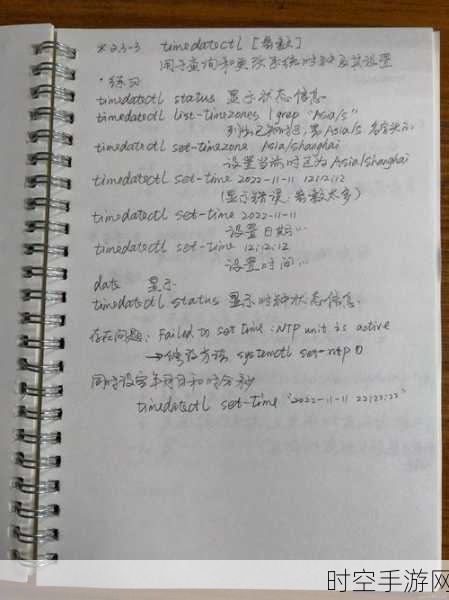 ※ 2.3-3 timedatectl [参数]
用于查询和更改系统时钟及其设置
·练习
timedatectl status 显示状态信息
timedatectl list-timezones | grep "Asia/s"
列出已知时区，Asia/s
timedatectl set-timezone Asia/Shanghai
设置当前时区为 Asia/Shanghai
timedatectl set-time 2022-11-11 12:12:12
(显示错误：参数太多)
timedatectl set-time 2022-11-11
设置日期…
timedatectl set-time 12:12:12
设置时间…
date 显示
timedatectl status 显示时钟状态信息.
存在问题：Failed to set time: NTP unit is active
→修改方法 systemctl set-ntp 0
同时设定年月日和时分秒
timedatectl set-time "2022-11-11 22:22:22"
时空手游网